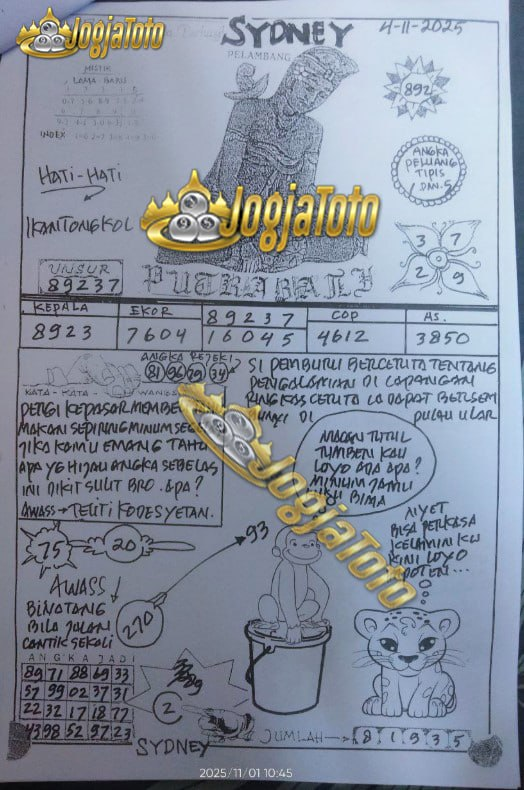 JogjaToto
SYDNEY
4-11-2025
PELAMBANG
MISTIK
LAMA BARU
INDEX
892
HATI-HATI
ANGKA
PELUANG
TIPIS
1 DAN.5
IKANTONGKOL
JogjaToto
3 7
2 9
UNSUR
89237
PUTRA BALI
KEPALA EKOR 89237 COP AS.
8923 7604 16045 4612 3850
ANGKA REJEKI
81 96 29 34
KATA-KATA
SI PEMBURU BERCERITA TENTANG
PENGALAMAN DI LAPANGAN
RINGKAS CERITA IA DAPAT BERSEM
DI PULAU ULAR
PERGI KEPASAR MEMBE
MAKAN SEPIRING MINUM SE
JIKA KAMU EMANG TAHU
APA YG HIJAU ANGKA SEBELAS
INI DIKIT SULIT BRO. APA?
AWASS → TELITI KODE SYETAN.
MACAN TUTUL
TUMBEN KAU
LOYO ADA APA?
MINUM JAMU
BIMA
JogjaToto
75
20
93
NIYET
BISA PERKASA
KELAMIN KU
KINI LOYO
POTEN...
AWASS!
BINATANG
BILA JALAN
CANTIK SEKALI
270
ANGKA JADI
89 71 88 69 33
57 99 02 37 31
22 32 17 18 77
43 98 52 97 23
89
2
SYDNEY
JUMLAH → 8 1 9 3 5
2025/11/01 10:45